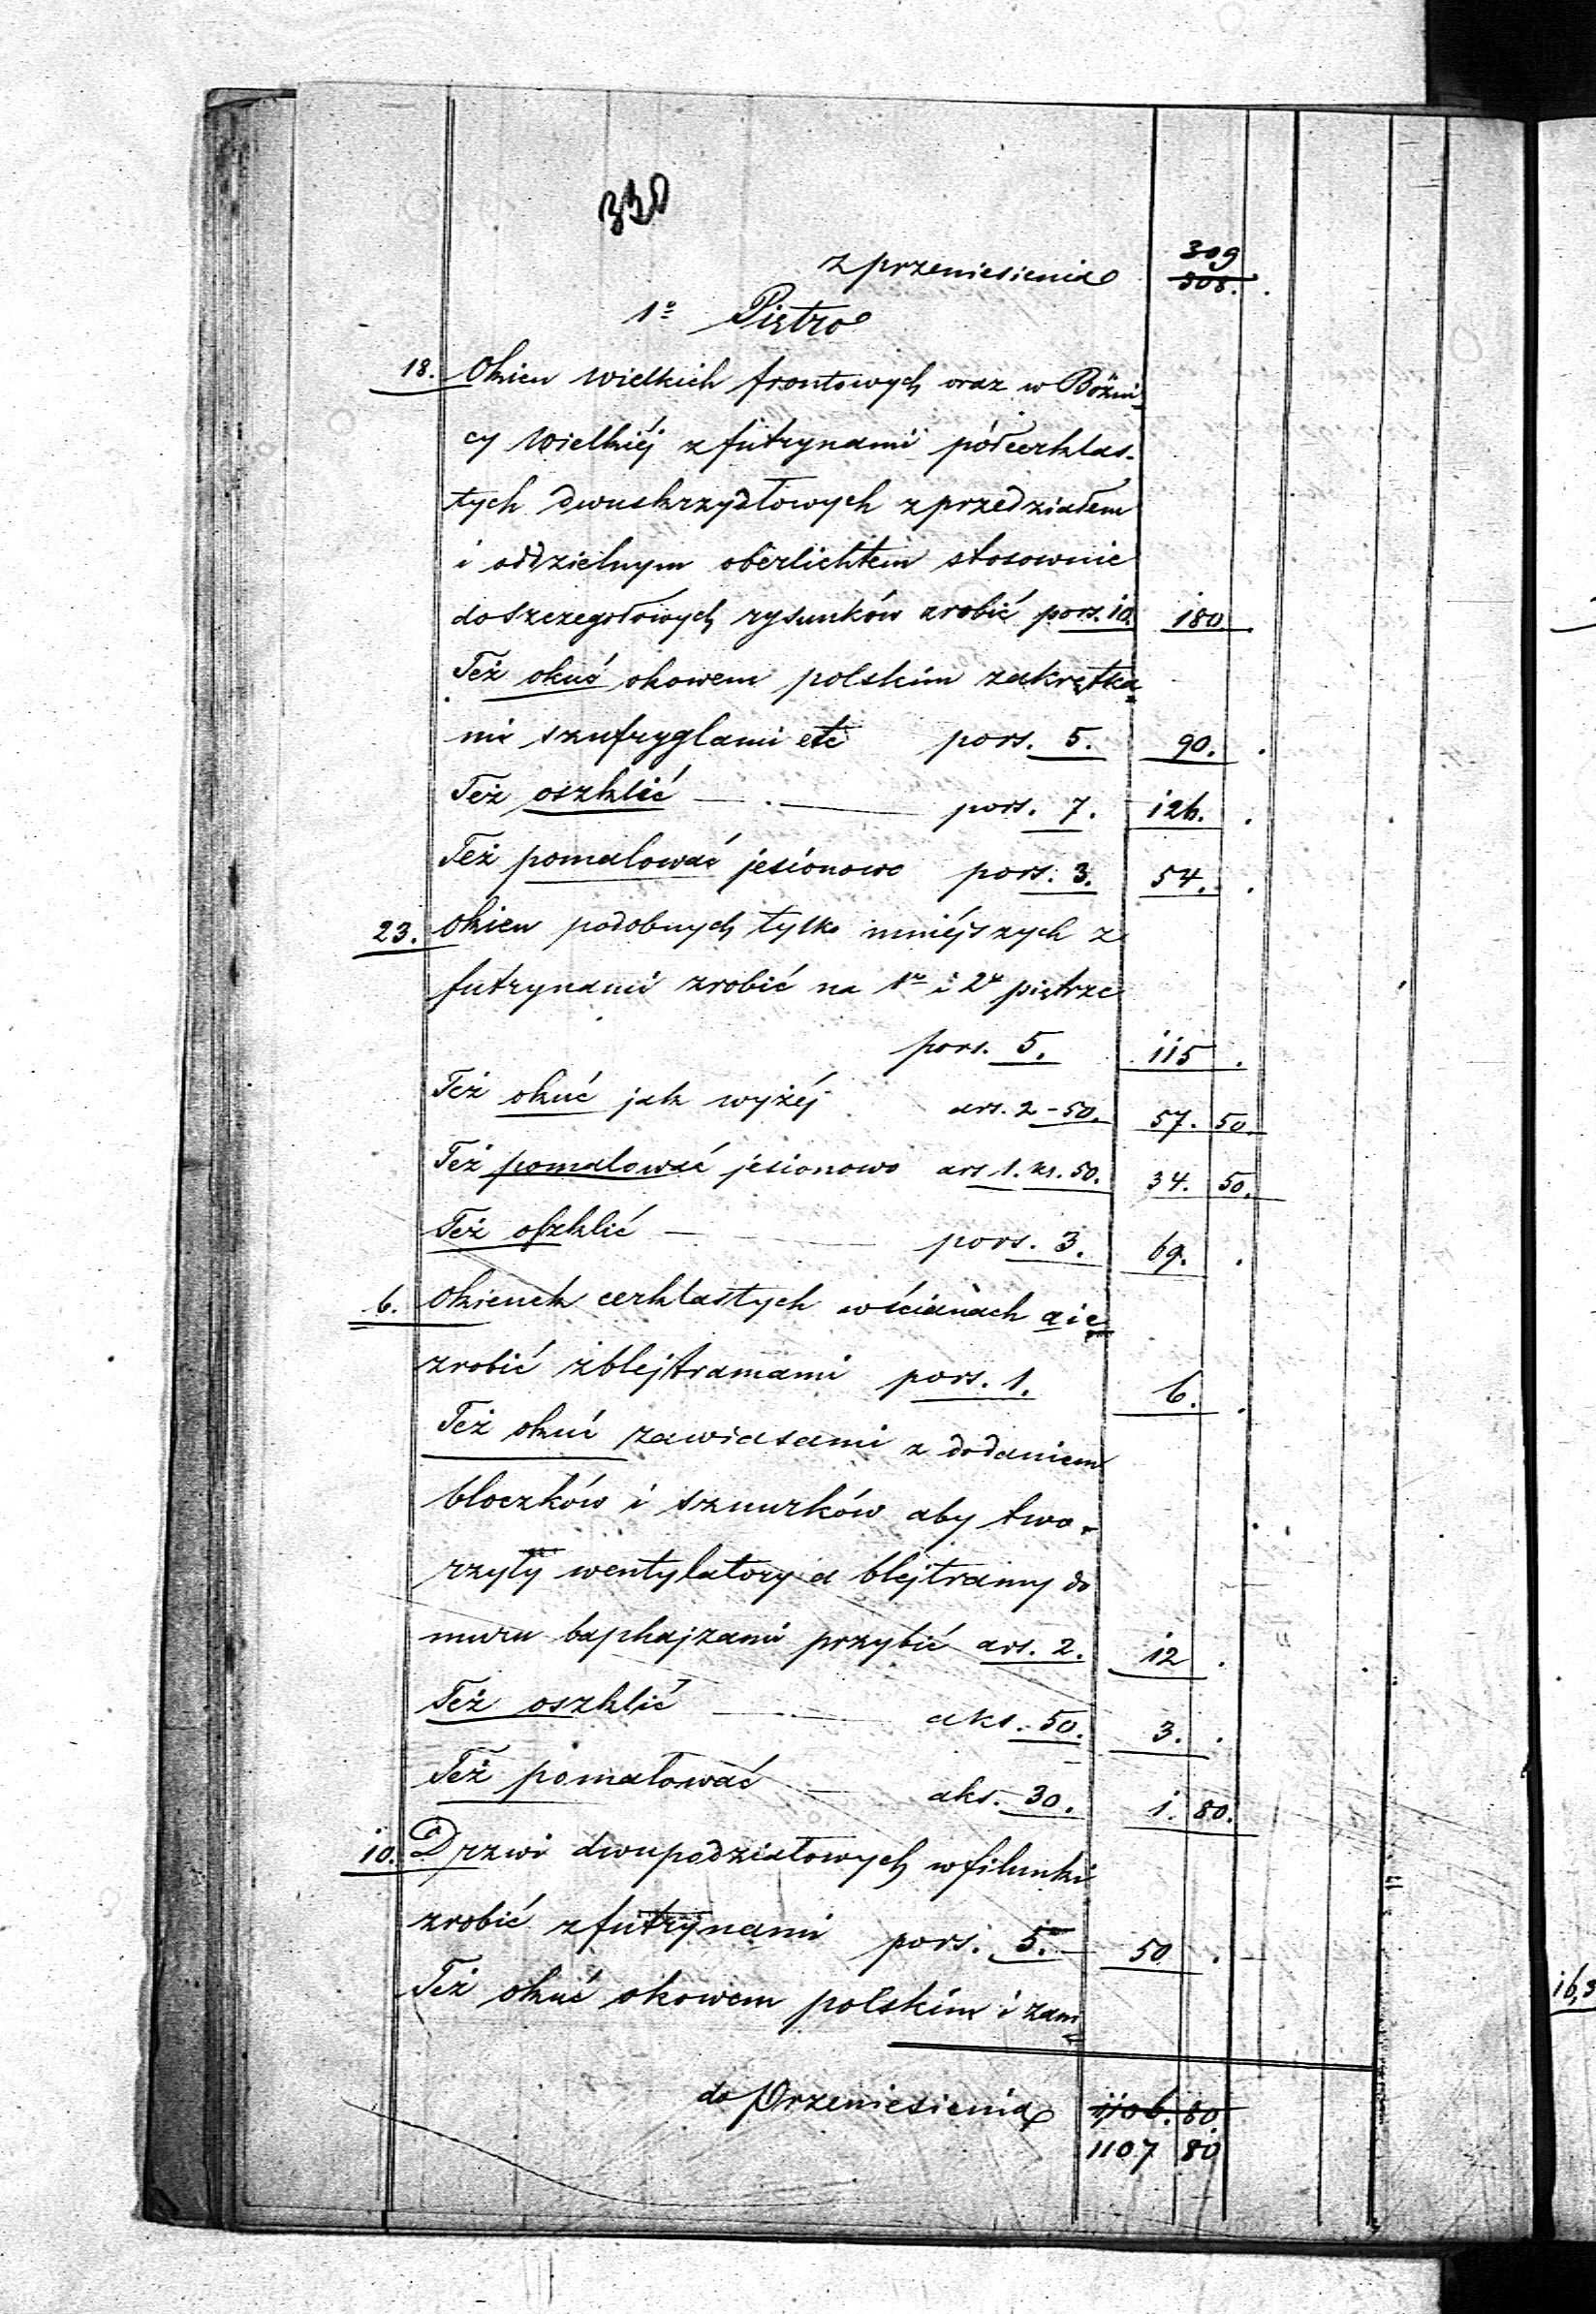 330
z przeniesienia 309
308. .
1º Piętro
18. Okien wielkich frontowych oraz w Bóżni-
cy Wielkiéj z futrynami półcerklas-
tych dwuskrzydłowych z przedziałem
i oddzielnym oberlichtem stosownie
do szczegołowych rysunków zrobić po rs. 10. 180 .
Też okuć okowem polskim zakrętka-
mi szufryglami etc po rs. 5. 90. .
Też oszklić — . — po rs. 7. 126. .
Też pomalować jesionowo po rs. 3. 54. .
23. Okien podobnych tylko mniéjszych z
futrynami zrobić na 1m i 2m piętrze
po rs. 5. 115 .
Też okuć jak wyżéj a rs. 2-50. 57. 50.
Też pomalować jesionowo a rs 1. k. 50. 34. 50.
Też oszklić — — po rs. 3. 69. .
6. Okienek cerklastych w ścianach a i c
zrobić z blejtramami po rs. 1. 6. .
Też okuć zawiasami z dodaniem
bloczków i sznurków aby two-
rzyły wentylatory a blejtramy do
muru baphajzami przybić a rs. 2. 12 .
Też oszklić — a ks. 50. 3. .
Też pomalować — a ks. 30. 1. 80.
10. Drzwi dwupodziałowych w filunki
zrobić z futrynami po rs. 5. 50 .
Też okuć okowem polskim i zam-
do Przeniesienia 1106. 80
1107 80
16,3